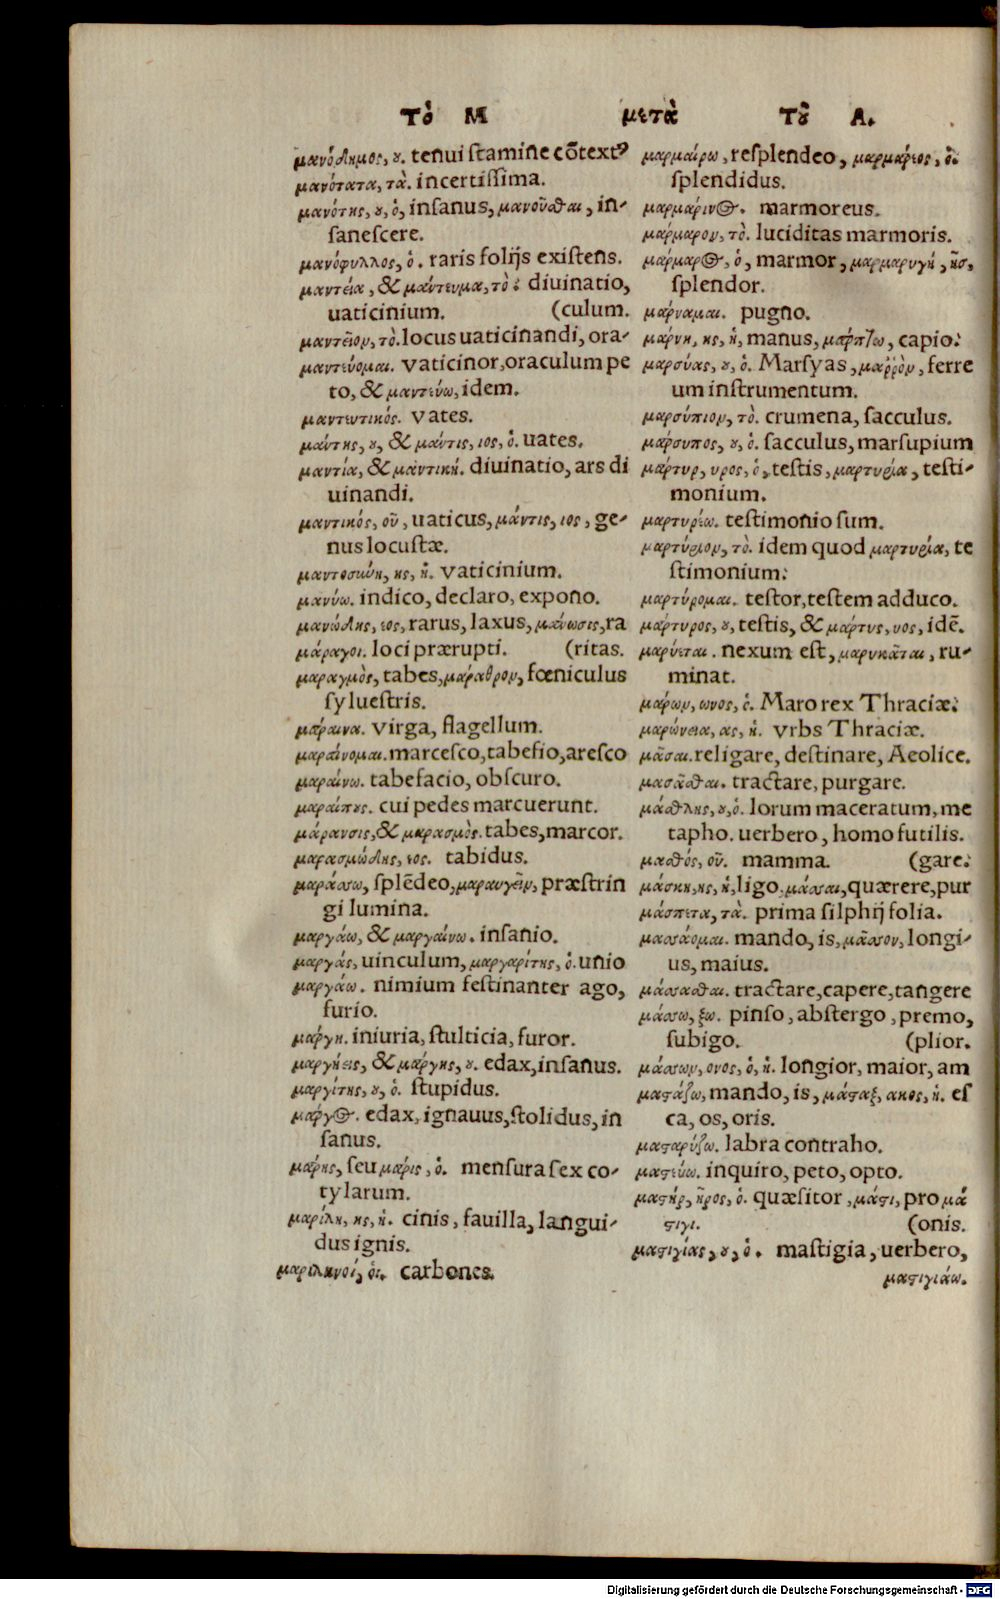 Τὸ Μ μετὰ Τοῦ Α.
μανόδημος, ου. tenui stamine cõtextꝰ
μανότατα, τὰ. incertissima.
μανότης, ου, ὁ, insanus, μανοῦσθαι, in-
sanescere.
μανόφυλλος, ὁ. raris folijs existens.
μαντεία, & μάντευμα, τὸ: diuinatio,
uaticinium. (culum.
μαντεῖον, τὸ. locus uaticinandi, ora-
μαντεύομαι. vaticinor, oraculum pe
to, & μαντεύω, idem.
μαντευτικός. vates.
μάντης, ου, & μάντις, ιος, ὁ. uates.
μαντία, & μαντική. diuinatio, ars di
uinandi.
μαντικός, οῦ, uaticus, μάντις, ιος, ge-
nus locustæ.
μαντοσύνη, ης, ἡ. vaticinium.
μανύω. indico, declaro, expono.
μανώδης, εος, rarus, laxus, μάνωσις, ra
μάραγοι. loci prærupti. (ritas.
μαραγμὸς, tabes, μάραθρον, fœniculus
syluestris.
μάραινα. virga, flagellum.
μαραίνομαι. marcesco, tabefio, aresco
μαραίνω. tabefacio, obscuro.
μαραίπους. cui pedes marcuerunt.
μάρανσις, & μαρασμὸς. tabes, marcor.
μαρασμώδης, εος. tabidus.
μαράσσω, splẽdeo, μαραυγεῖν, præstrin
gi lumina.
μαργάω, & μαργαίνω. insanio.
μαργάς, uinculum, μαργαρίτης, ὁ. unio
μαργάω. nimium festinanter ago,
furio.
μάργη. iniuria, stulticia, furor.
μαργήεις, & μάργης, ου. edax, insanus.
μαργίτης, ου, ὁ. stupidus.
μάργος. edax, ignauus, stolidus, in
sanus.
μάρης, seu μάρις, ὁ. mensura sex co-
tylarum.
μαρίλη, ης, ἡ. cinis, fauilla, langui-
dus ignis.
μαριληνοί, οἱ. carbones.
μαρμαίρω, resplendeo, μαρμάρεος, ὁ.
splendidus.
μαρμάρινος. marmoreus.
μάρμαρον, τὸ. luciditas marmoris.
μάρμαρος, ὁ, marmor, μαρμαρυγή, ῆς,
splendor.
μάρναμαι. pugno.
μάρνη, ης, ἡ, manus, μάρπτω, capio:
μαρσύας, ου, ὁ. Marsyas, μάῤῥον, ferre
um instrumentum.
μαρσύπιον, τὸ. crumena, sacculus.
μάρσυπος, ου, ὁ. sacculus, marsupium
μάρτυρ, υρος, ὁ, testis, μαρτυρία, testi-
monium.
μαρτυρέω. testimonio sum.
μαρτύριον, τὸ. idem quod μαρτυρία, te
stimonium:
μαρτύρομαι. testor, testem adduco.
μάρτυρος, ου, testis, & μάρτυς, υος, idẽ.
μαρύεται. nexum est, μαρυκᾶται, ru-
minat.
μάρων, ωνος, ὁ. Maro rex Thraciæ:
μαρώνεια, ας, ἡ. vrbs Thraciæ.
μᾶσαι. religare, destinare, Aeolice.
μασᾶσθαι. tractare, purgare.
μάσθλης, ου, ὁ. lorum maceratum, me
tapho. uerbero, homo futilis.
μασθός, οῦ. mamma. (gare:
μάσκη, ης, ἡ, ligo. μάσαι, quærere, pur
μάσπετα, τὰ. prima silphij folia.
μασσάομαι. mando, is, μᾶσσον, longi-
us, maius.
μάσσασθαι. tractare, capere, tangere
μάσσω, ξω. pinso, abstergo, premo,
subigo. (plior.
μάσσων, ονος, ὁ, ἡ. longior, maior, am
μαστάζω, mando, is, μάσταξ, ακος, ἡ. es
ca, os, oris.
μασταρύζω. labra contraho.
μαστεύω. inquiro, peto, opto.
μαστήρ, ῆρος, ὁ. quæsitor, μάστι, pro μά
στιγι. (onis.
μαστιγίας, ου, ὁ. mastigia, uerbero,
μαστιγιάω.
Digitalisierung gefördert durch die Deutsche Forschungsgemeinschaft - DFG